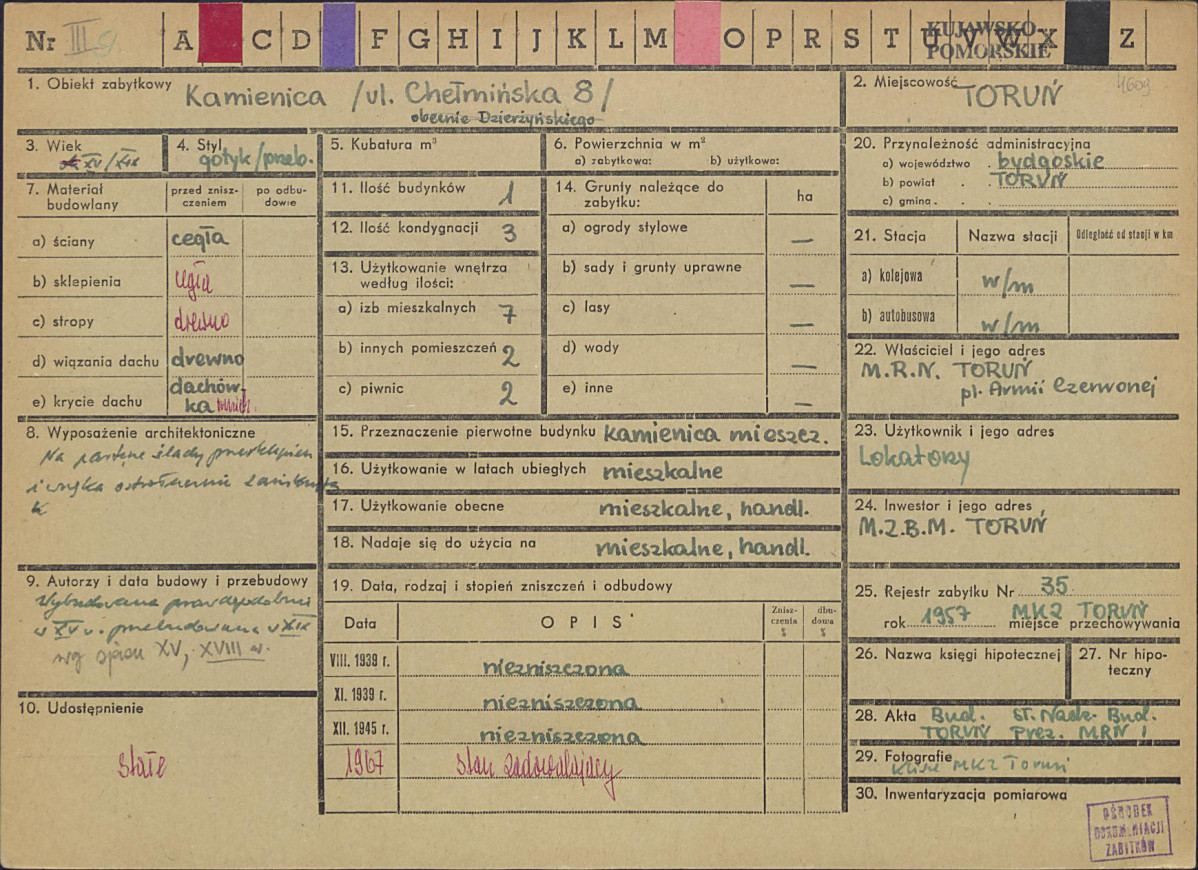 Nr III A C D F G H I J K L M O P R S T U V W X Z
KUJAWSKO-
POMORSKIE
1. Obiekt zabytkowy Kamienica /ul. Chełmińska 8/
obecnie Dzierżyńskiego
2. Miejscowość TORUŃ
4609
3. Wiek
XV/XIX
4. Styl
gotyk/przeb.
5. Kubatura m³
6. Powierzchnia w m²
a) zabytkowa: b) użytkowa:
7. Materiał budowlany
przed znisz-
czeniem
po odbu-
dowie
a) ściany cegła
b) sklepienia cegła
c) stropy drewno
d) wiązania dachu drewno
e) krycie dachu dachów-
ka
8. Wyposażenie architektoniczne
Na parterze ślady przesklepień
i wnęka ostrołucznie zamknięta
9. Autorzy i data budowy i przebudowy
Wybudowana prawdopodobnie
w XV w. przebudowana w XIX
wg opisu XV, XVIII w.
10. Udostępnienie
stałe
11. Ilość budynków 1
12. Ilość kondygnacji 3
13. Użytkowanie wnętrza
według ilości:
a) izb mieszkalnych 7
b) innych pomieszczeń 2
c) piwnic 2
14. Grunty należące do
zabytku:
ha
a) ogrody stylowe —
b) sady i grunty uprawne —
c) lasy —
d) wody —
e) inne —
15. Przeznaczenie pierwotne budynku kamienica mieszcz.
16. Użytkowanie w latach ubiegłych mieszkalne
17. Użytkowanie obecne mieszkalne, handl.
18. Nadaje się do użycia na mieszkalne, handl.
19. Data, rodzaj i stopień zniszczeń i odbudowy
Data
OPIS
Znisz-
czenia
%
dbu-
dowa
%
VIII. 1939 r. niezniszczona
XI. 1939 r. niezniszczona
XII. 1945 r. niezniszczona
1967 stan zadowalający
20. Przynależność administracyjna
a) województwo . bydgoskie
b) powiat . . TORUŃ
c) gmina . . .
21. Stacja
Nazwa stacji
Odległość od stacji w km
a) kolejowa w/m
b) autobusowa w/m
22. Właściciel i jego adres
M.R.N. TORUŃ
pl. Armii Czerwonej
23. Użytkownik i jego adres
Lokatorzy
24. Inwestor i jego adres
M.Z.B.M. TORUŃ
25. Rejestr zabytku Nr 35
rok 1957 MKZ TORUŃ
miejsce przechowywania
26. Nazwa księgi hipotecznej
27. Nr hipo-
teczny
28. Akta Bud. St. Nadz. Bud.
TORUŃ Prez. MRN
29. Fotografie
Klisze MKZ Toruń
30. Inwentaryzacja pomiarowa
OŚRODEK
DOKUMENTACJI
ZABYTKÓW